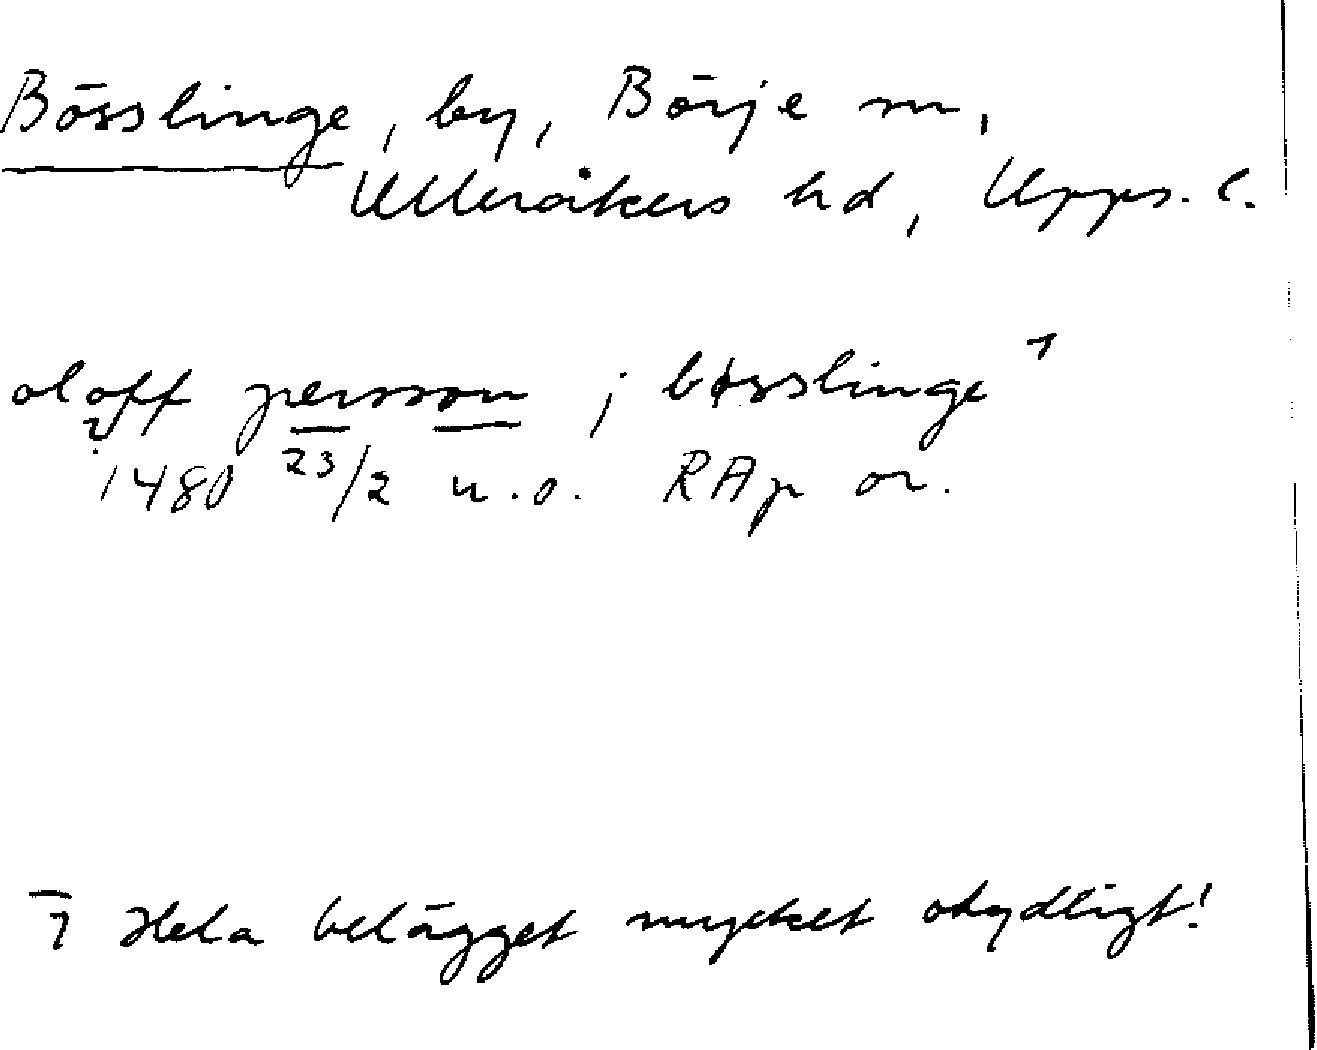 Bösslinge, by, Börje sn,
Ulleråkers hd, Upps. l.
oloff persson j bøsslinge 1
1480 23/2 u.o. RAp or.
1 Hela belägget mycket otydligt!